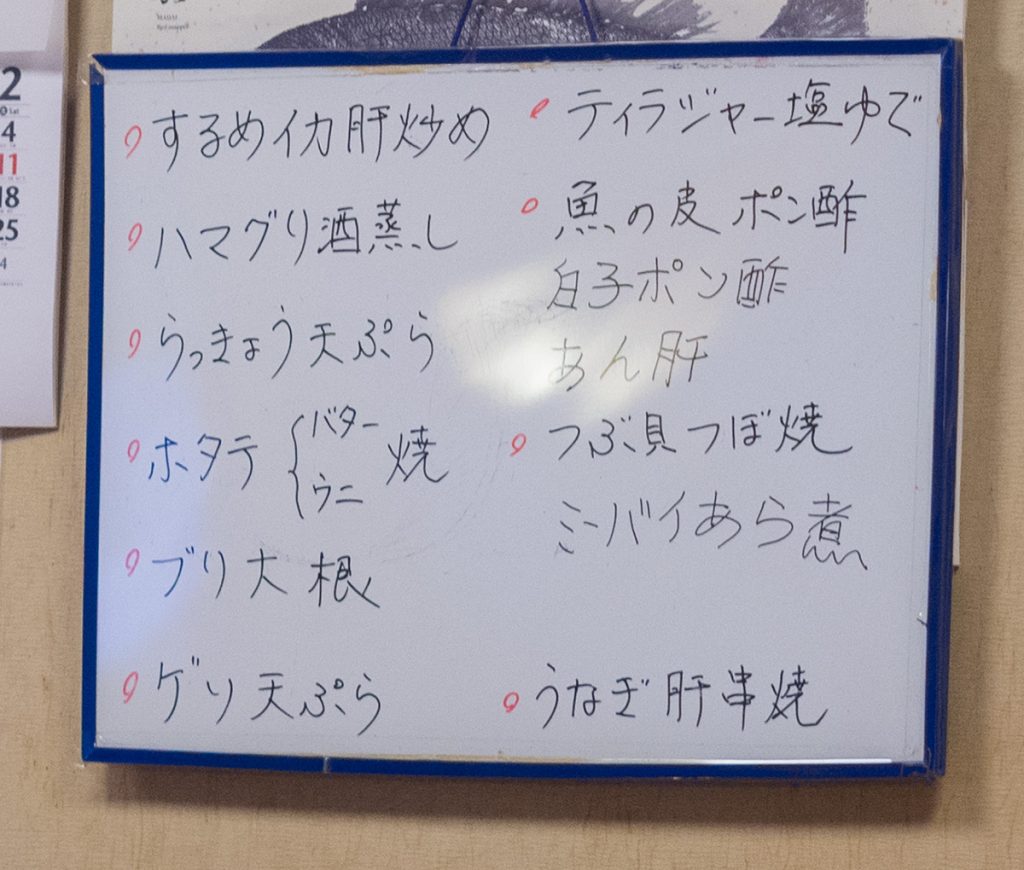 2
Sat
4
11
18
25
4
するめイカ肝炒め
ハマグリ酒蒸し
らっきょう天ぷら
ホタテ { バター ウニ 焼
ブリ大根
ゲソ天ぷら
ティラジャー塩ゆで
魚の皮ポン酢
白子ポン酢
あん肝
つぶ貝つぼ焼
ミーバイあら煮
うなぎ肝串焼